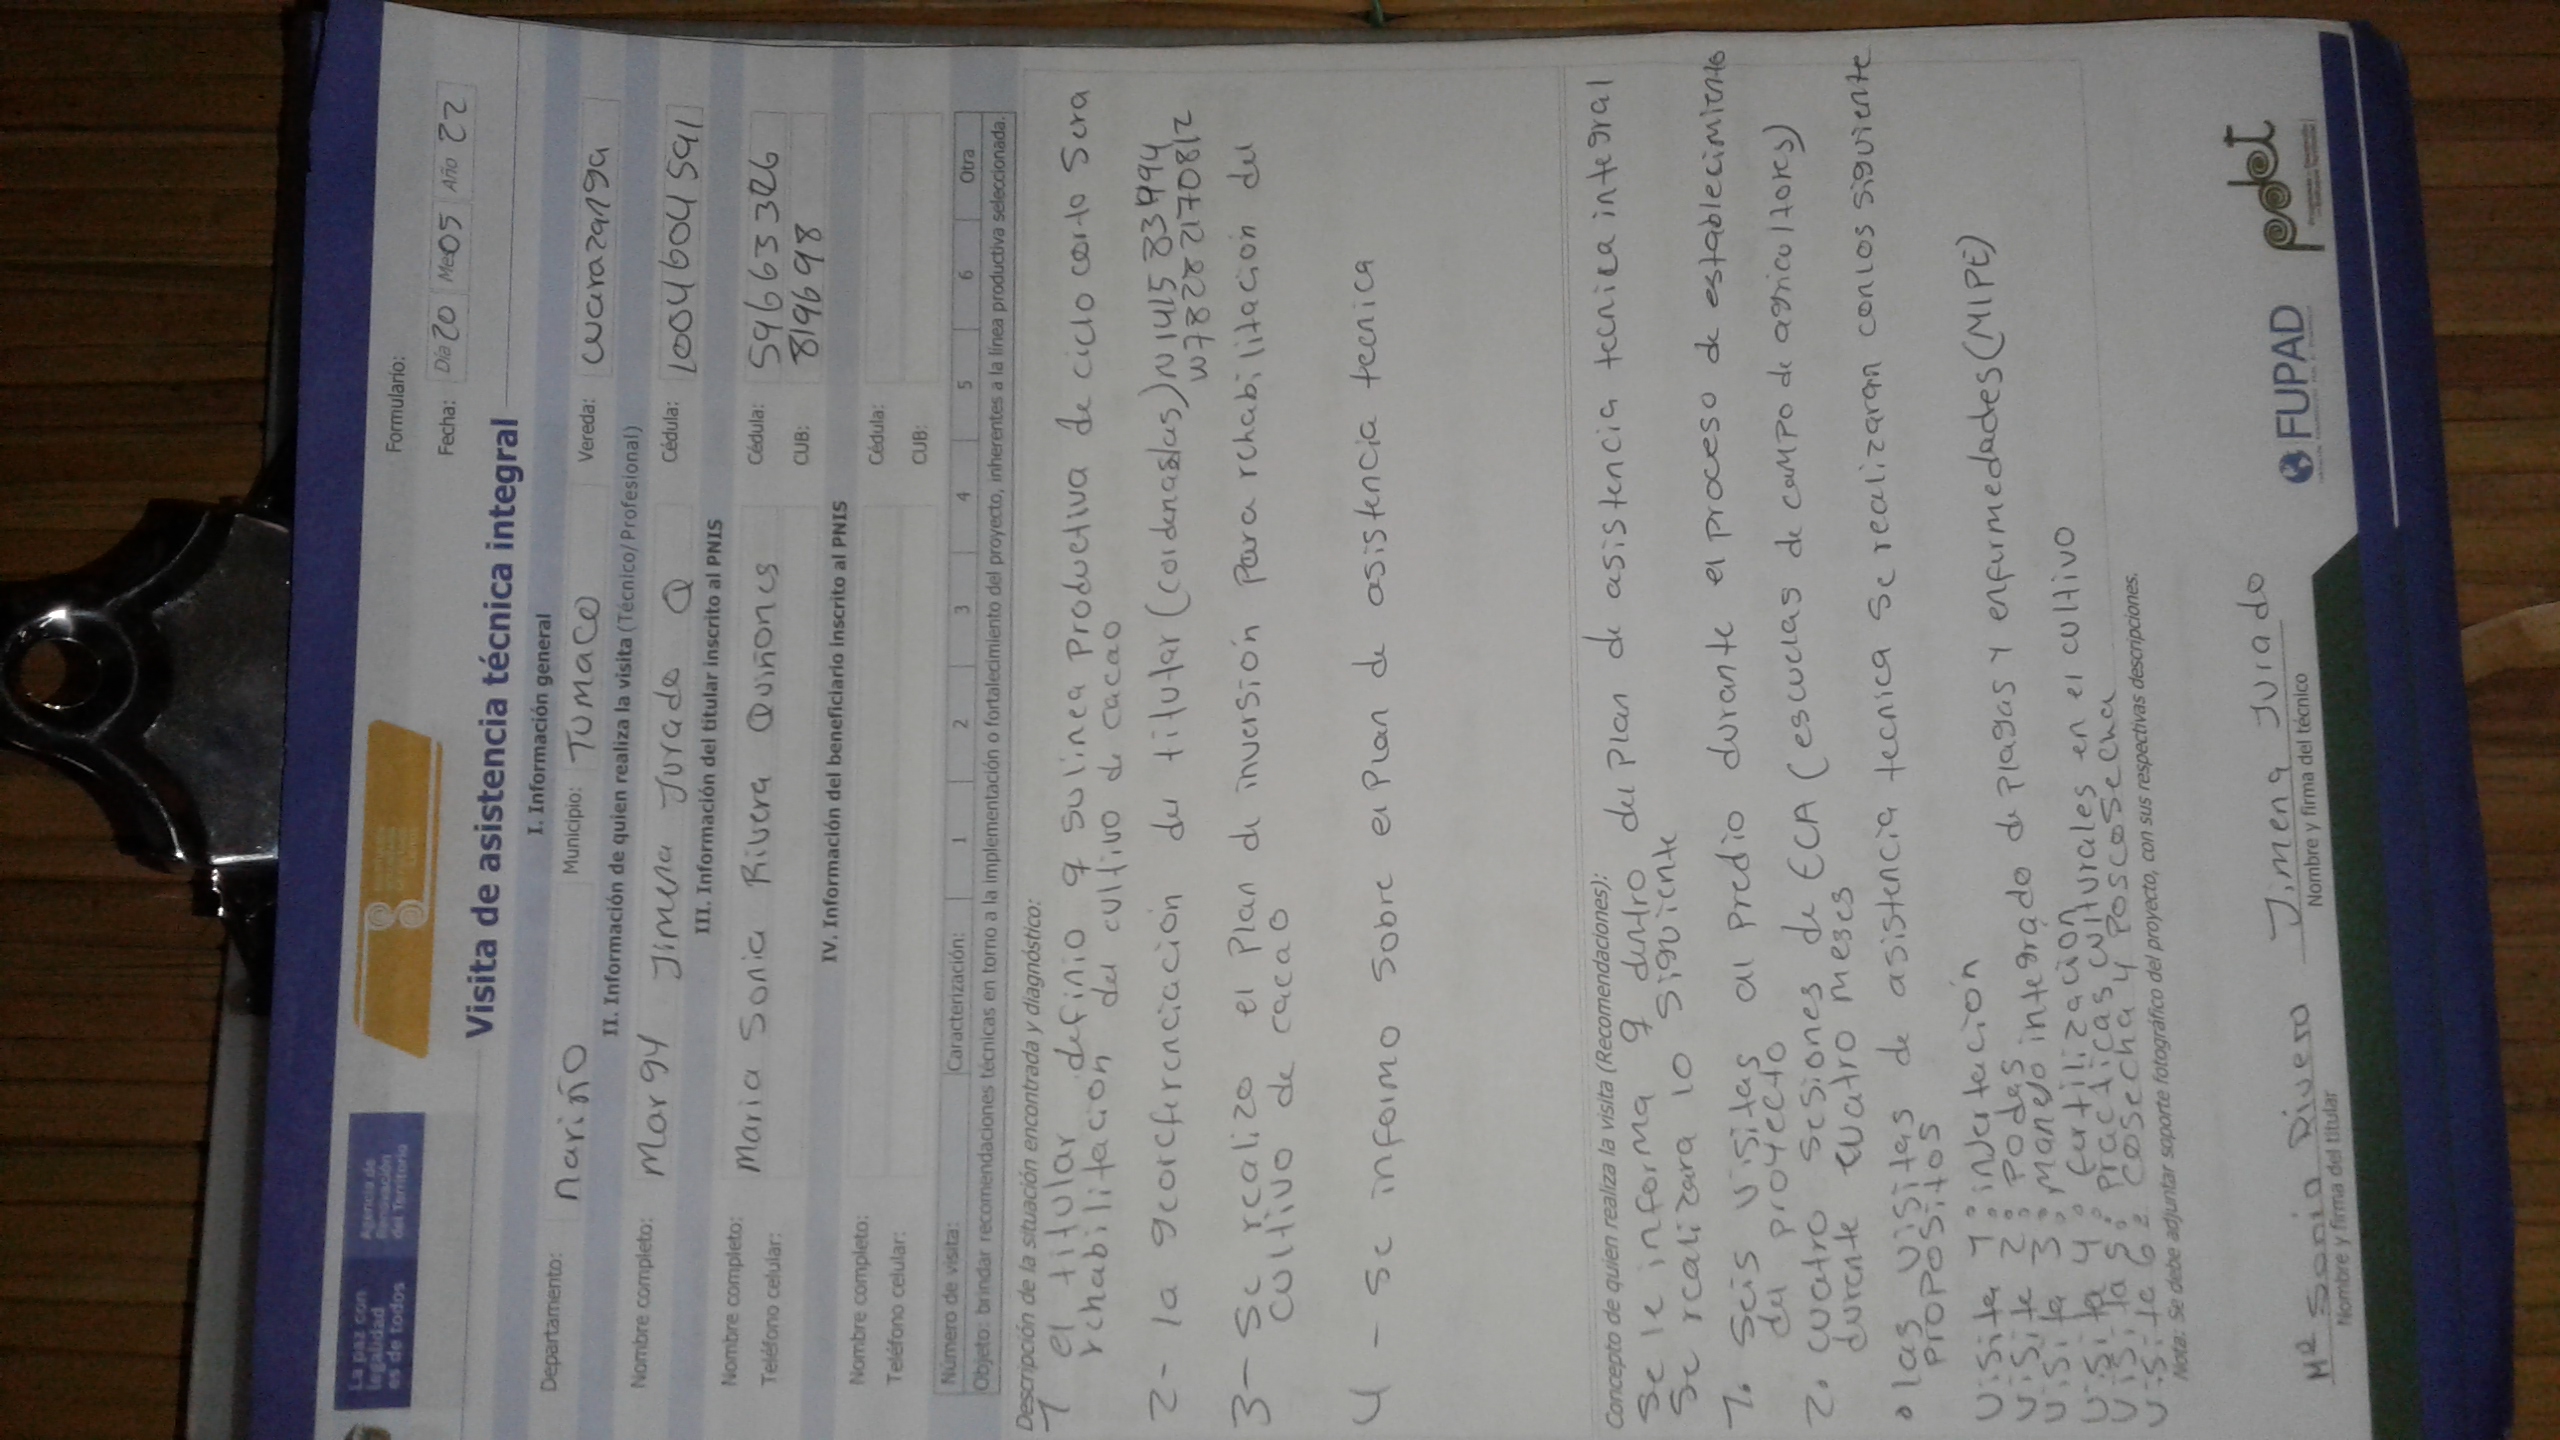 La paz con
legalidad
es de todos
Agencia de
Renovación
del Territorio
Formulario:
Fecha: Día 20 Mes 05 Año 22
Visita de asistencia técnica integral
I. Información general
Departamento: nariño Municipio: Tumaco Vereda: warazanga
II. Información de quien realiza la visita (Técnico/Profesional)
Nombre completo: Margy Jimena Jurado Q Cédula: 1004604591
III. Información del titular inscrito al PNIS
Nombre completo: Maria Sonia Rivera Quiñones Cédula: 59663326
Teléfono celular: CUB: 819698
IV. Información del beneficiario inscrito al PNIS
Nombre completo: Cédula:
Teléfono celular: CUB:
Número de visita: Caracterización: 1 2 3 4 5 6 Otra
Objeto: brindar recomendaciones técnicas en torno a la implementación o fortalecimiento del proyecto, inherentes a la línea productiva seleccionada.
Descripción de la situación encontrada y diagnóstico:
1 el titular definio q su linea Productiva de ciclo corto sera
rehabilitacion del cultivo de cacao
2- la georeferenciación del titular (cordenadas) N1415
W78282170812
3- se realizo el Plan de inversión Para rehabilitación del
cultivo de cacao
4 - se informo sobre el Plan de asistencia tecnica
Concepto de quien realiza la visita (Recomendaciones):
se le informa q dentro del plan de asistencia tecnica integral
se realizara lo siguiente
1. seis visitas al predio durante el proceso de establecimiento
del proyecto
2. cuatro sesiones de ECA (escuelas de campo de agricultores)
durante cuatro meses
• las visitas de asistencia tecnica se realizaran con los siguiente
propositos
visita 1: injertación
visite 2: podas
visita 3: manejo integrado de plagas y enfermedades (MIPE)
visita 4: fertilización
visita 5: practicas culturales en el cultivo
visite 6: cosecha y poscosecha
Nota: Se debe adjuntar soporte fotográfico del proyecto, con sus respectivas descripciones.
Mª Sonia Rivera
Nombre y firma del titular
Jimena Jurado
Nombre y firma del técnico
FUPAD
pdet